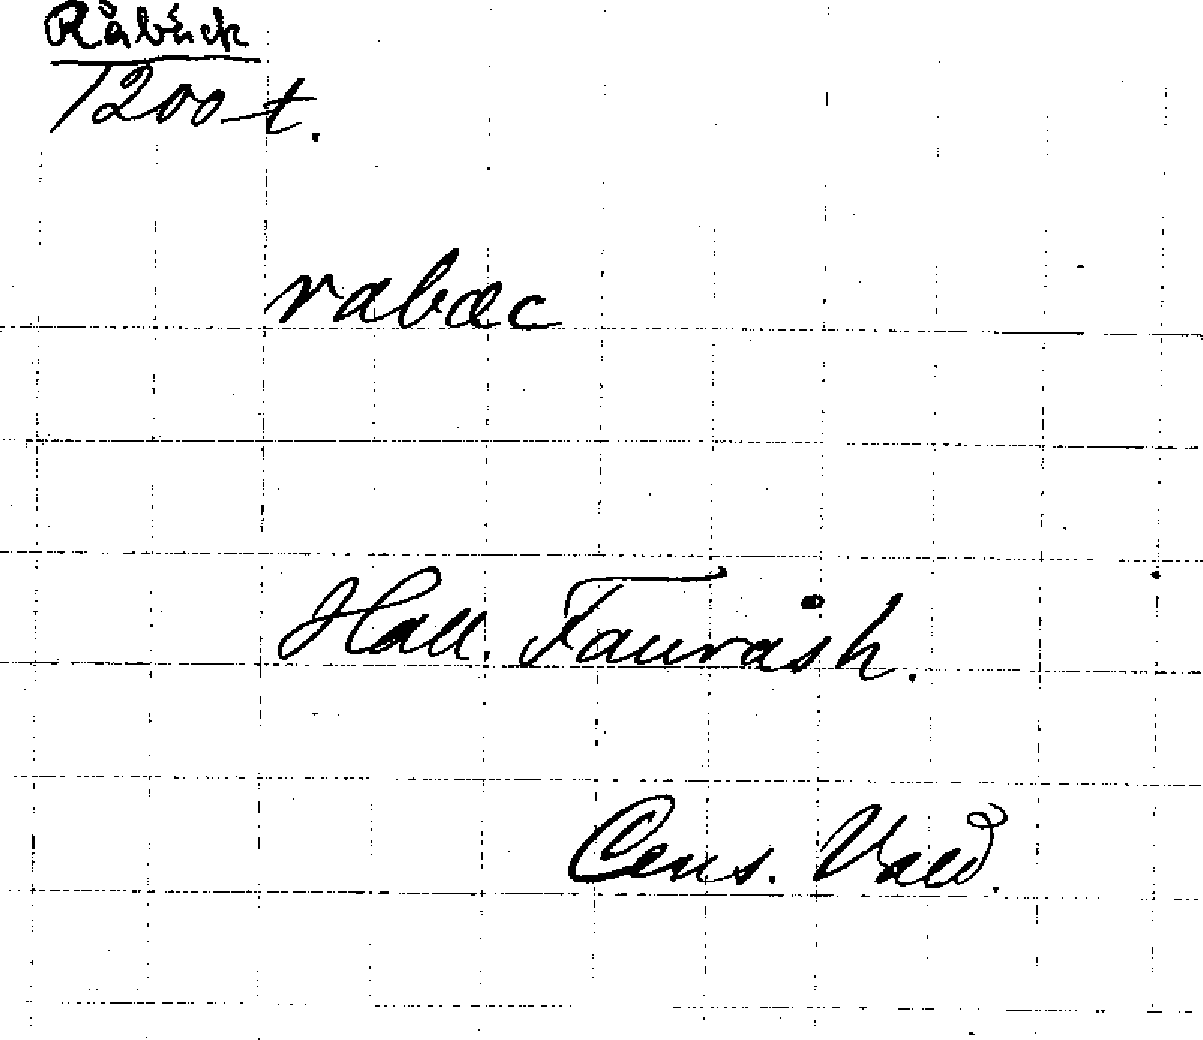 Råbäck
1200 t.
rabæc
Hall. Fauråsh.
Cens. Vald.